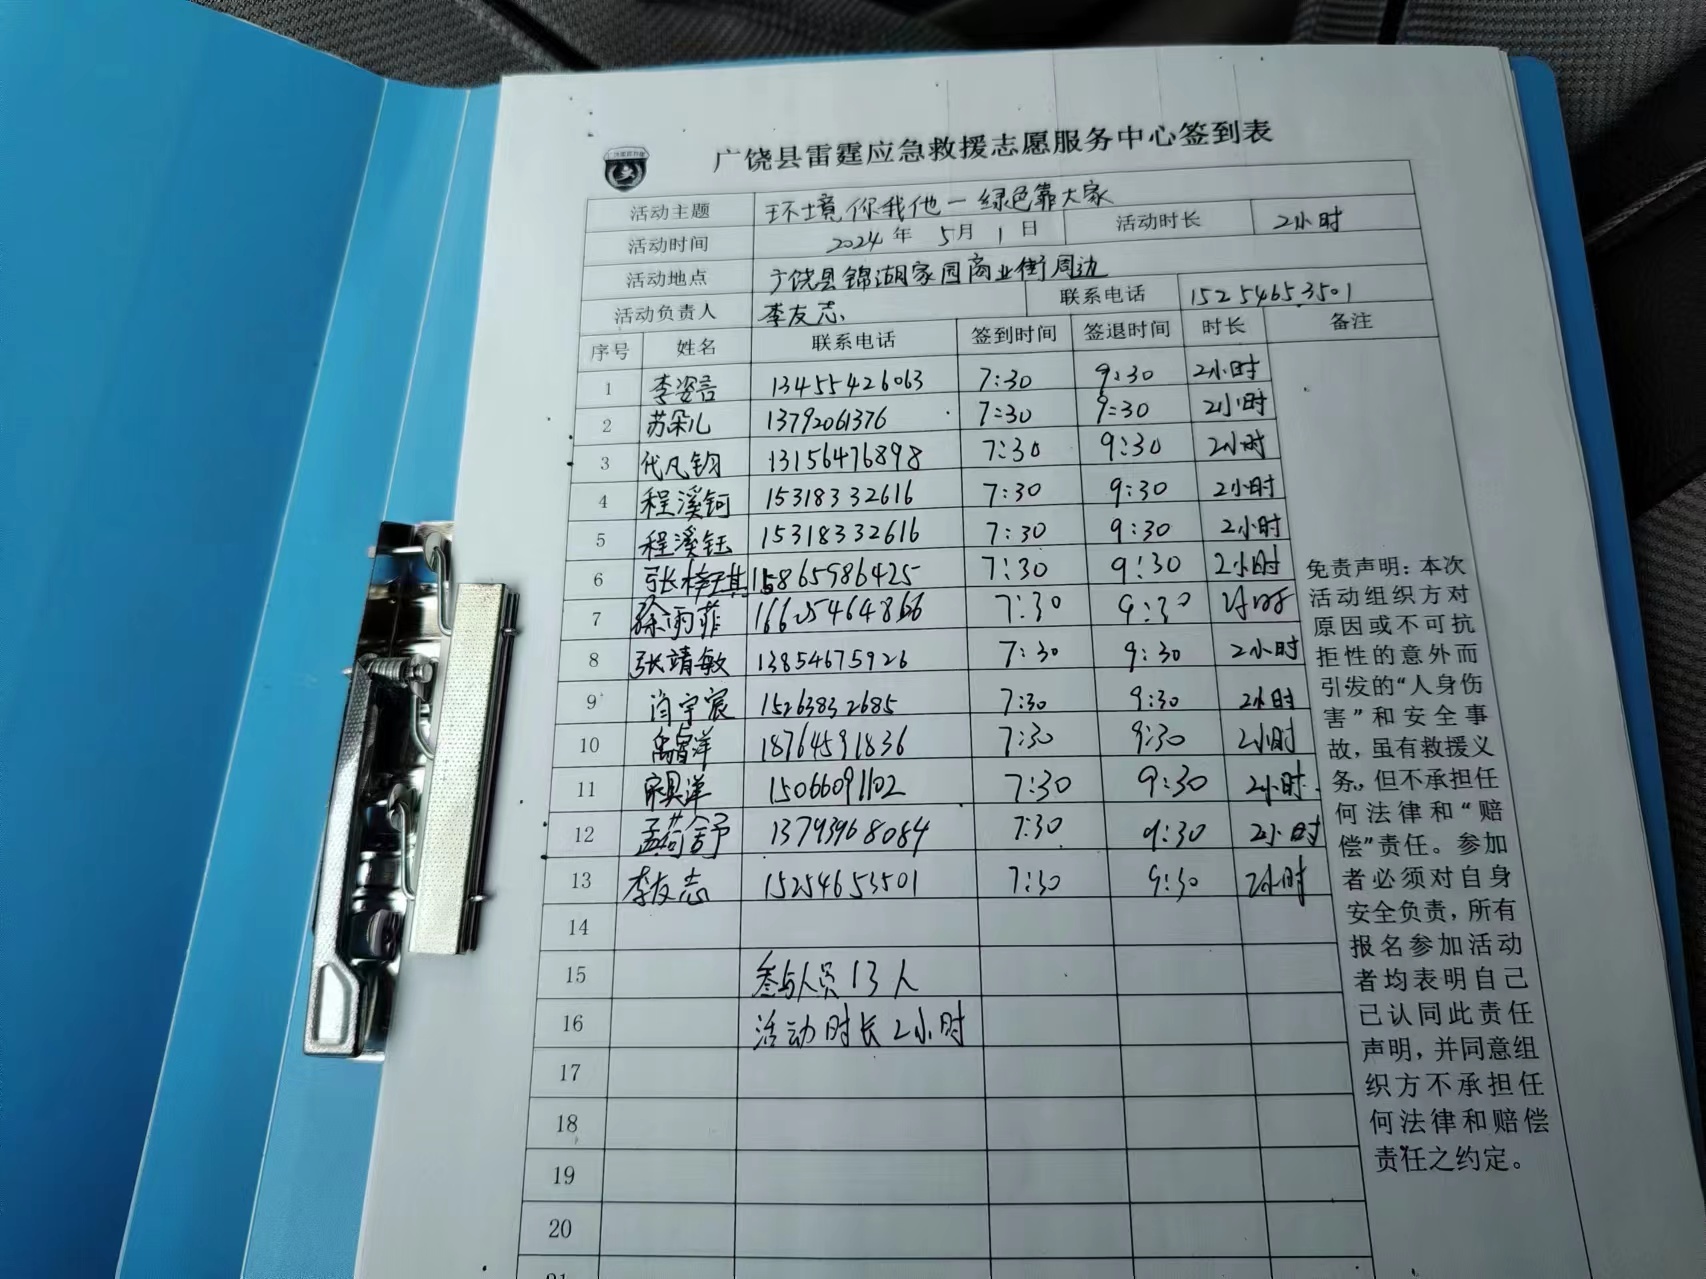 广饶县雷霆应急救援志愿服务中心签到表
活动主题 环境你我他一绿色靠大家
活动时间 2024年 5月 1日 活动时长 2小时
活动地点 广饶县锦湖家园商业街周边
活动负责人 李友志 联系电话 15254653501
序号 姓名 联系电话 签到时间 签退时间 时长 备注
1 李姿言 13455426063 7:30 9:30 2小时
2 苏朵儿 13792061376 7:30 9:30 2小时
3 代凡钧 13156476898 7:30 9:30 2小时
4 程溪钶 15318332616 7:30 9:30 2小时
5 程溪钰 15318332616 7:30 9:30 2小时
6 15865986425 7:30 9:30 2小时
7 徐雨菲 7:30 9:30 2小时
8 张靖敏 13854675926 7:30 9:30 2小时
9 闫宇宸 15263832685 7:30 9:30 2小时
10 18764591836 7:30 9:30 2小时
11 15066091102 7:30 9:30 2小时
12 孟荷舒 13793968084 7:30 9:30 2小时
13 李友志 15254653501 7:30 9:30 2小时
14
15 参与人员13人
16 活动时长2小时
17
18
19
20
21
免责声明：本次
活动组织方对
原因或不可抗
拒性的意外而
引发的“人身伤
害”和安全事
故，虽有救援义
务，但不承担任
何法律和“赔
偿”责任。参加
者必须对自身
安全负责，所有
报名参加活动
者均表明自己
已认同此责任
声明，并同意组
织方不承担任
何法律和赔偿
责任之约定。